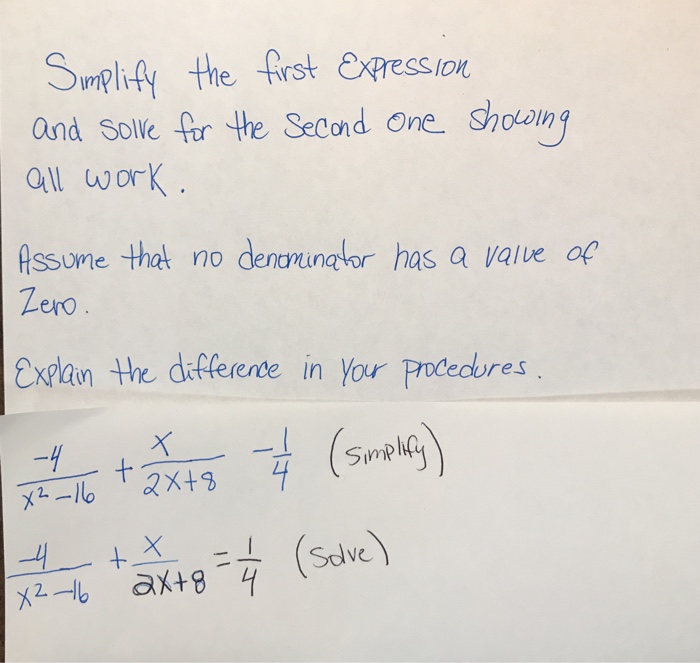 Simplify the first Expression
and solve for the Second one showing
all work.
Assume that no denominator has a value of
Zero.
Explain the difference in Your procedures.
-4/(x²-16) + x/(2x+8) - 1/4 (simplify)
-4/(x²-16) + x/(2x+8) = 1/4 (solve)